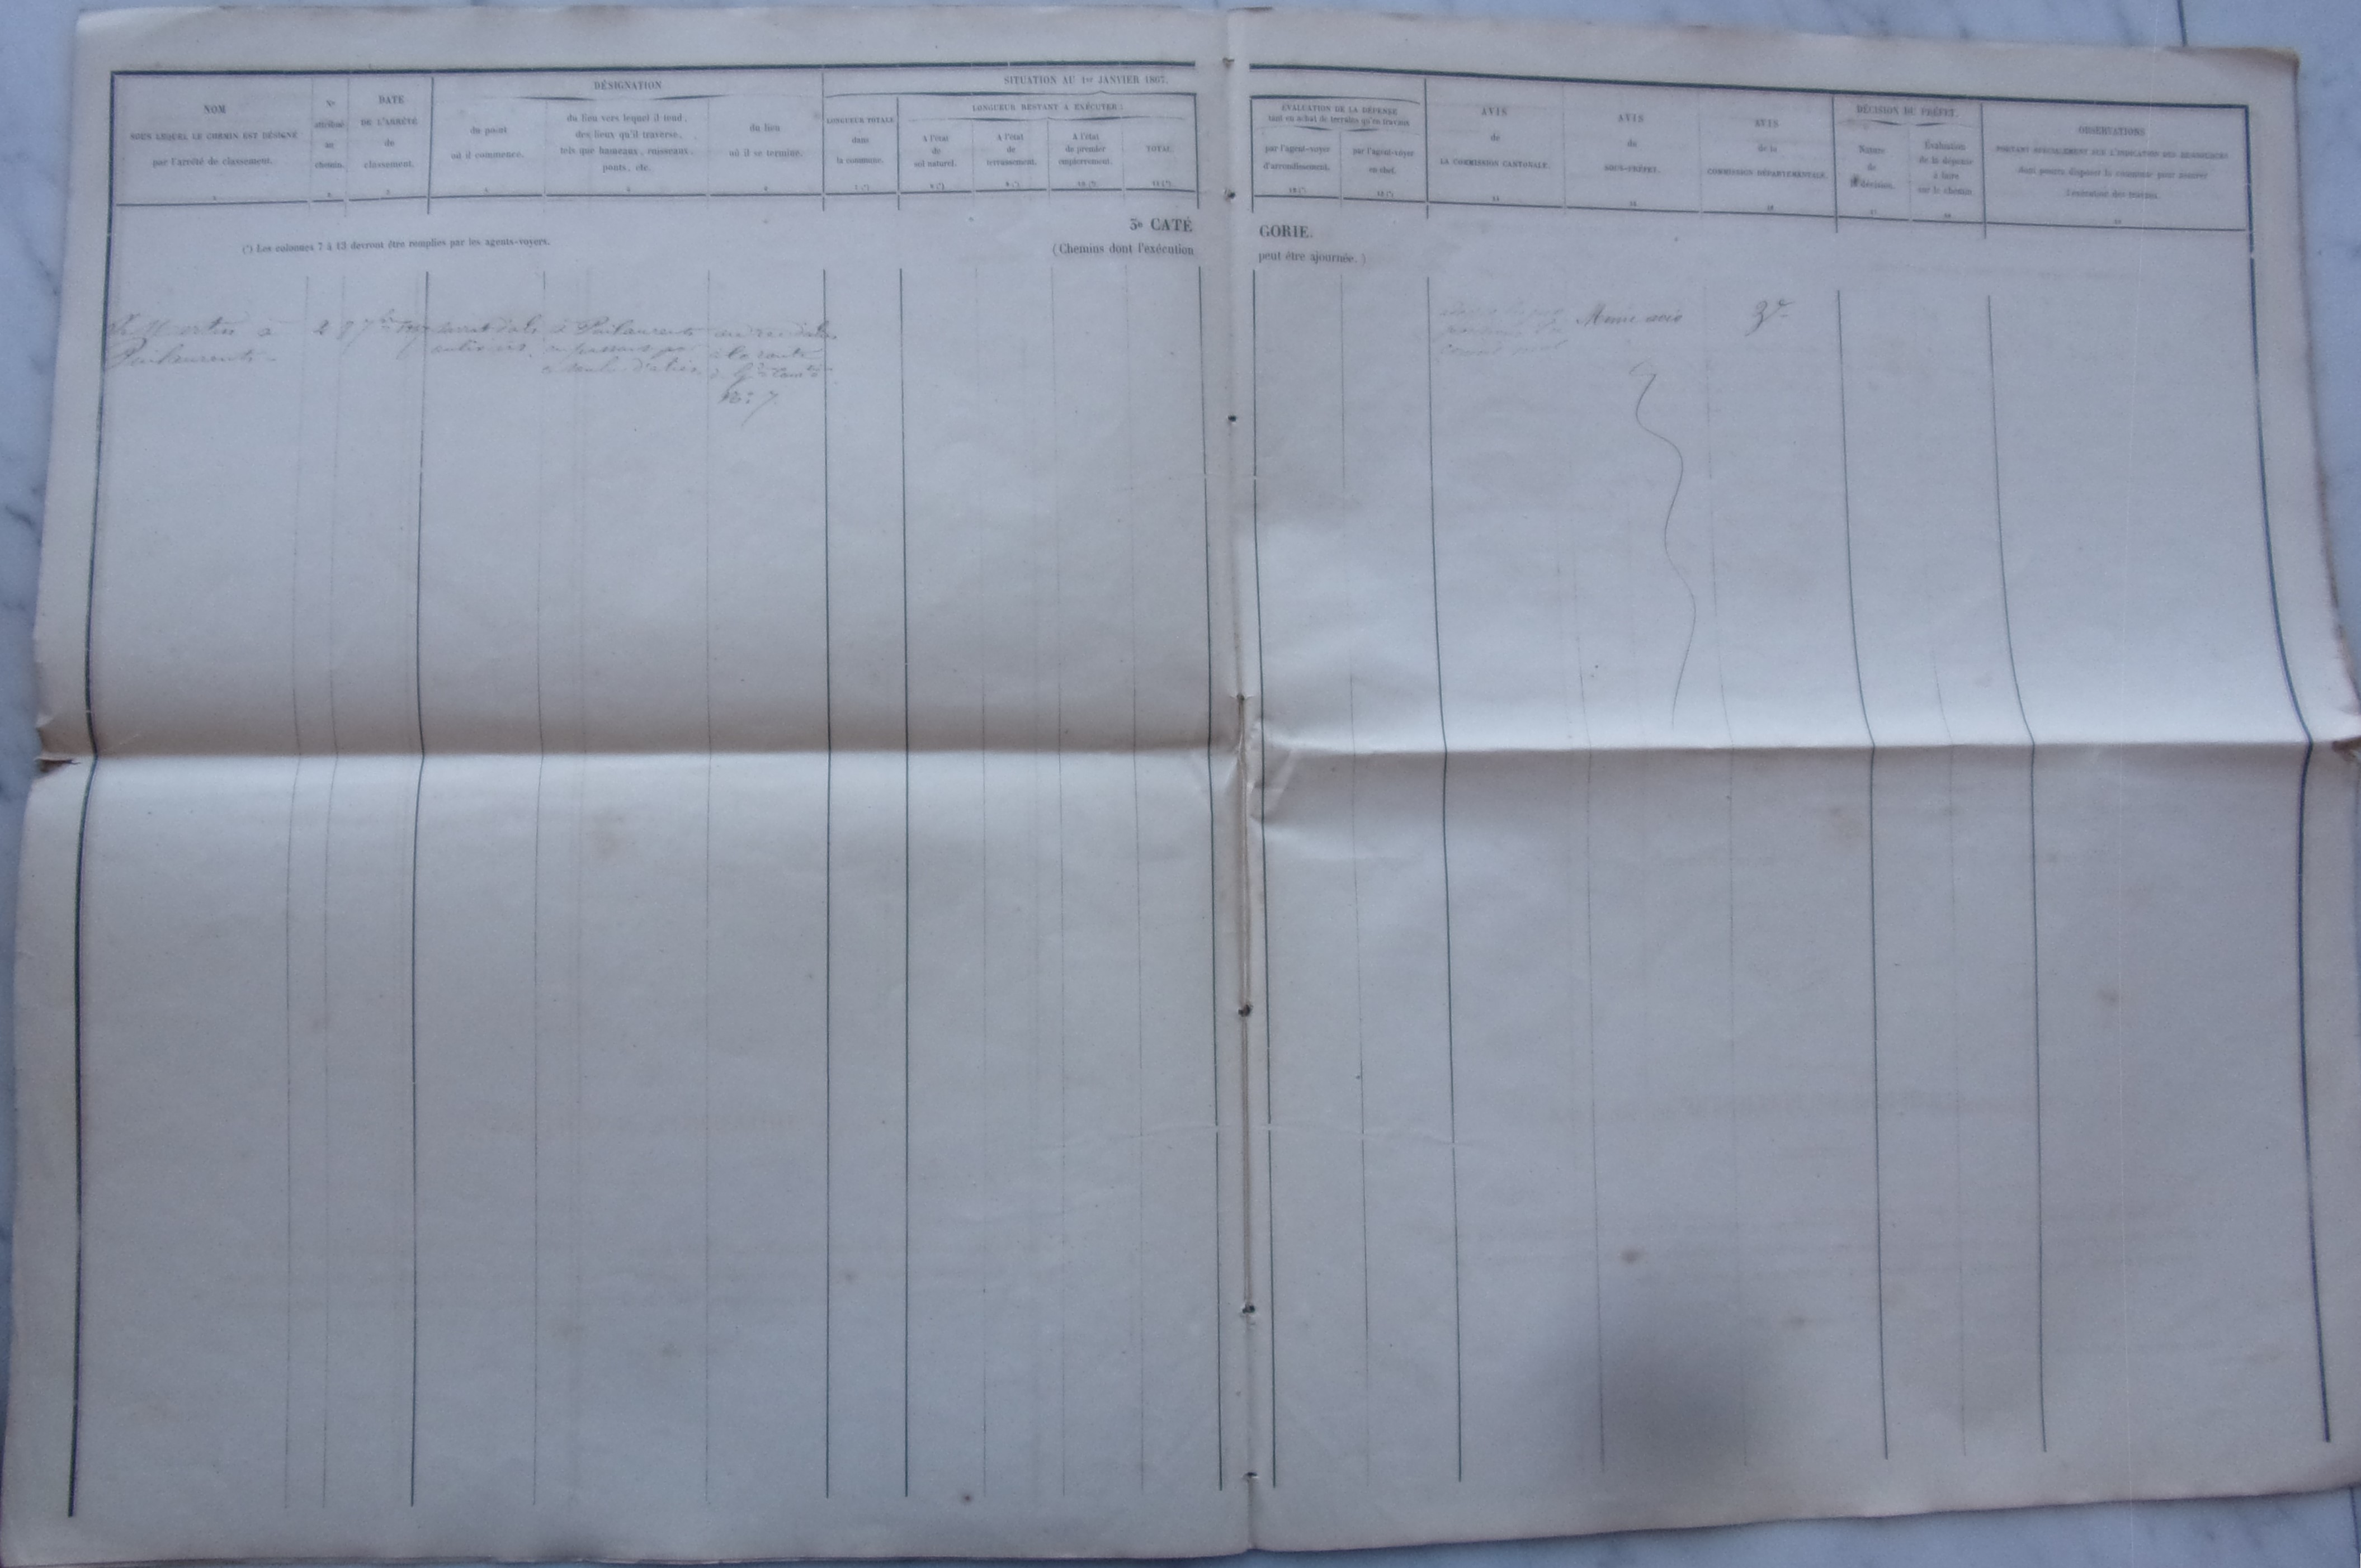 NOM
SOUS LEQUEL LE CHEMIN EST DÉSIGNÉ
par l'arrêté de classement.
No
attribué
au
chemin.
DATE
DE L'ARRÊTÉ
de
classement.
DÉSIGNATION
du point
où il commence.
du lieu vers lequel il tend,
des lieux qu'il traverse,
tels que hameaux, ruisseaux,
ponts, etc.
du lieu
où il se termine.
SITUATION AU 1er JANVIER 1867.
LONGUEUR TOTALE
dans
la commune.
7 (*)
LONGUEUR RESTANT A EXÉCUTER :
A l'état
de
sol naturel.
8 (*)
A l'état
de
terrassement.
9 (*)
A l'état
de premier
empierrement.
10 (*)
TOTAL.
11 (*)
ÉVALUATION DE LA DÉPENSE
tant en achat de terrains qu'en travaux
par l'agent-voyer
d'arrondissement.
par l'agent-voyer
en chef.
AVIS
de
LA COMMISSION CANTONALE.
AVIS
du
SOUS-PRÉFET.
AVIS
de la
COMMISSION DÉPARTEMENTALE.
DÉCISION DU PRÉFET.
Nature
de
la décision.
Évaluation
de la dépense
à faire
sur le chemin
OBSERVATIONS
PORTANT SPÉCIALEMENT SUR L'INDICATION DES RESSOURCES
dont pourra disposer la commune pour assurer
l'exécution des travaux.
3e CATÉGORIE.
(*) Les colonnes 7 à 13 devront être remplies par les agents-voyers.
(Chemins dont l'exécution peut être ajournée.)
à
Puilaurens
2
à Puilaurens
en passant par
à la route
No 7
Même avis
3e